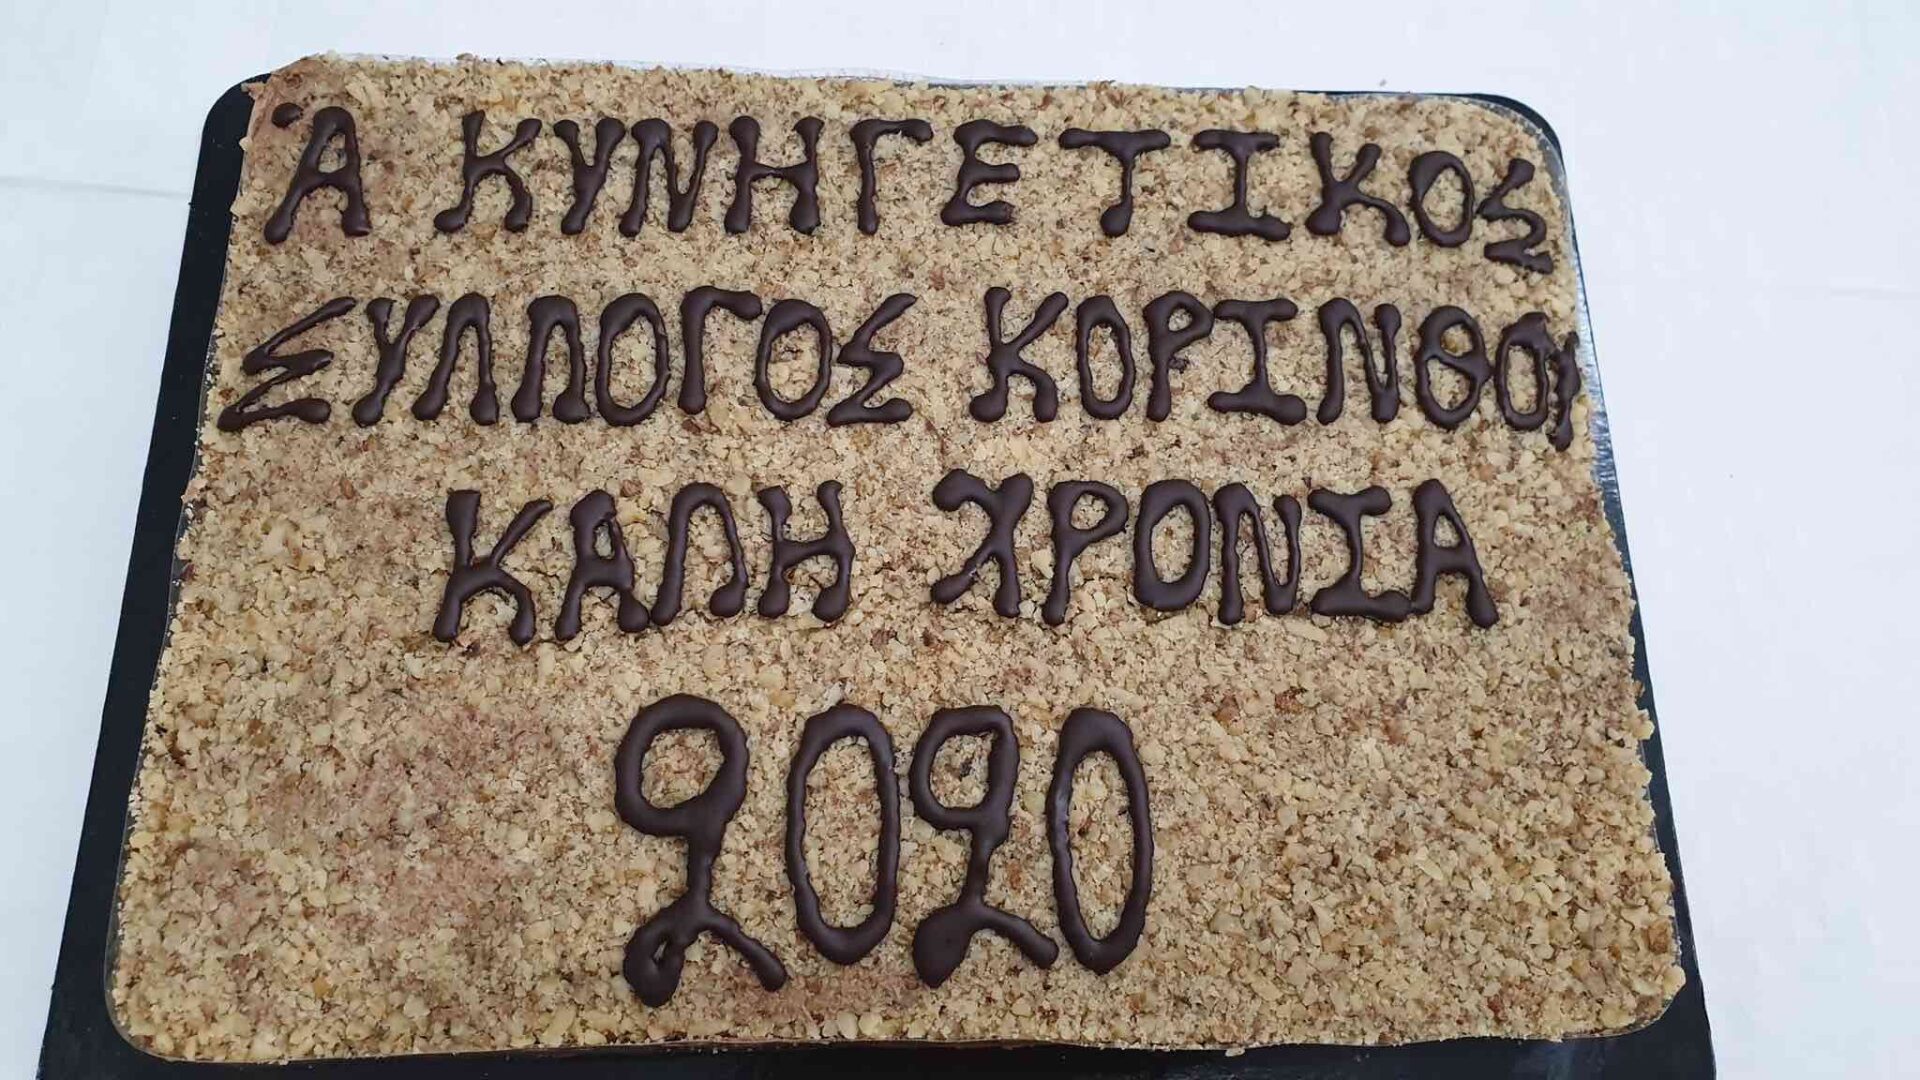 Ά ΚΥΝΗΓΕΤΙΚΟΣ
ΣΥΛΛΟΓΟΣ ΚΟΡΙΝΘΟΥ
ΚΑΛΗ ΧΡΟΝΙΑ
2020